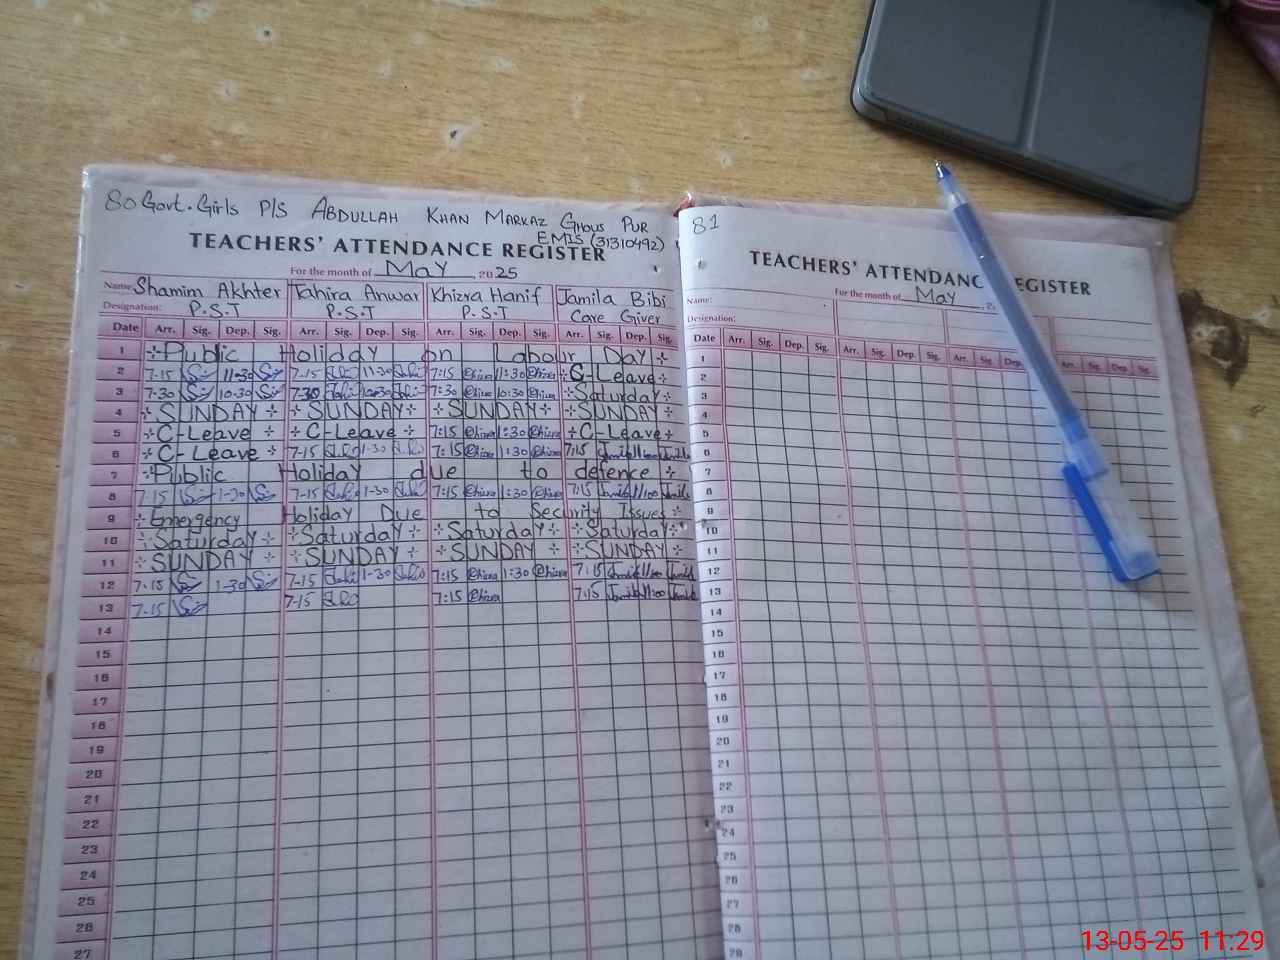 80 Govt. Girls P/S ABDULLAH KHAN MARKAZ GHOUS PUR
EMIS (31310492)
TEACHERS' ATTENDANCE REGISTER
For the month of May, 2025
Name: Shamim Akhter Tahira Anwar Khizra Hanif Jamila Bibi
Designation: P.S.T P.S.T P.S.T Care Giver
Date Arr. Sig. Dep. Sig. Arr. Sig. Dep. Sig. Arr. Sig. Dep. Sig. Arr. Sig. Dep. Sig.
1 Public Holiday on Labour Day
2 7-15 11-30 7-15 11-30 7:15 11:30 C-Leave
3 7-30 10-30 7-30 10-30 7:30 10:30 Saturday
4 SUNDAY SUNDAY SUNDAY SUNDAY
5 C-Leave C-Leave 7:15 1:30 C-Leave
6 C-Leave 7-15 1-30 7:15 1:30 7:15
7 Public Holiday due to defence
8 7-15 1-30 7-15 1-30 7:15 1:30 7:15
9 Emergency Holiday Due to Security Issues
10 Saturday Saturday Saturday Saturday
11 SUNDAY SUNDAY SUNDAY SUNDAY
12 7-15 1-30 7-15 1-30 7:15 1:30 7:15
13 7-15 7-15 7:15 7:15
14
15
16
17
18
19
20
21
22
23
24
25
26
27
81
TEACHERS' ATTENDANC REGISTER
For the month of May
Name:
Designation:
Date Arr. Sig. Dep. Sig. Arr. Sig. Dep. Sig. Arr. Sig. Dep. Arr. Sig. Dep. Sig.
1
2
3
4
5
6
7
8
9
10
11
12
13
14
15
16
17
18
19
20
21
22
23
24
25
26
27
28
29
13-05-25 11:29